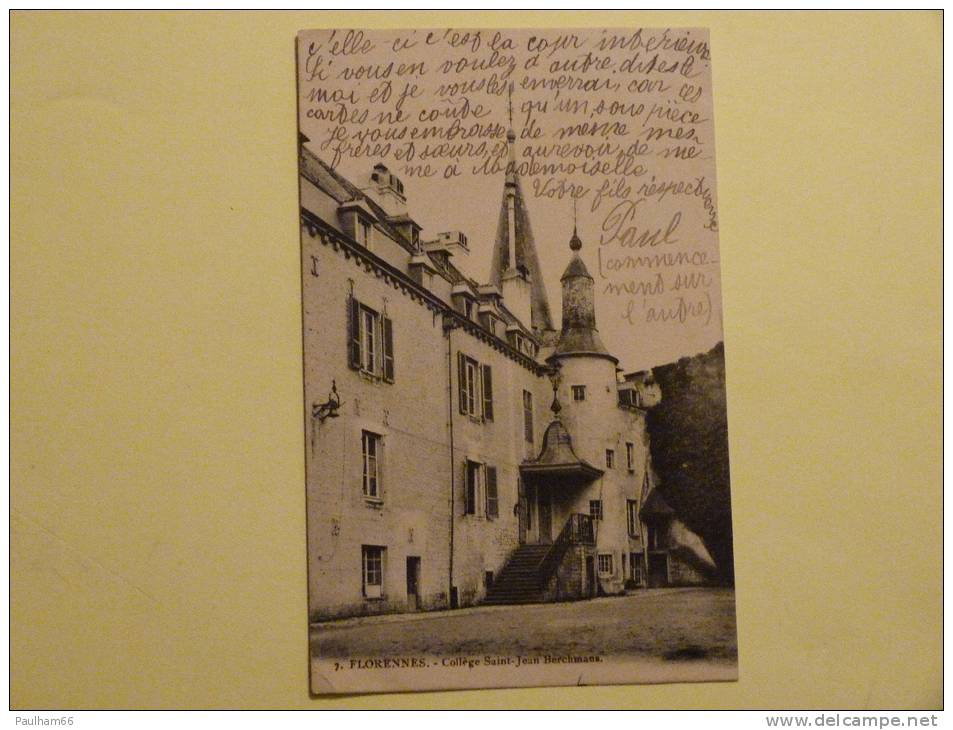 c'elle-ci c'est la cour intérieure
Si vous en voulez d'autre, dites le
moi et je vous les enverrai, car ces
cartes ne coûte qu'un sous pièce
Je vous embrasse de meme mes
frères et sœurs, et aurevoir de mê-
me à Mademoiselle
Votre fils réspectueux
Paul
(commence-
ment sur
l'autre)
7. FLORENNES. - Collège Saint-Jean Berchmans.
Paulham66
www.delcampe.net